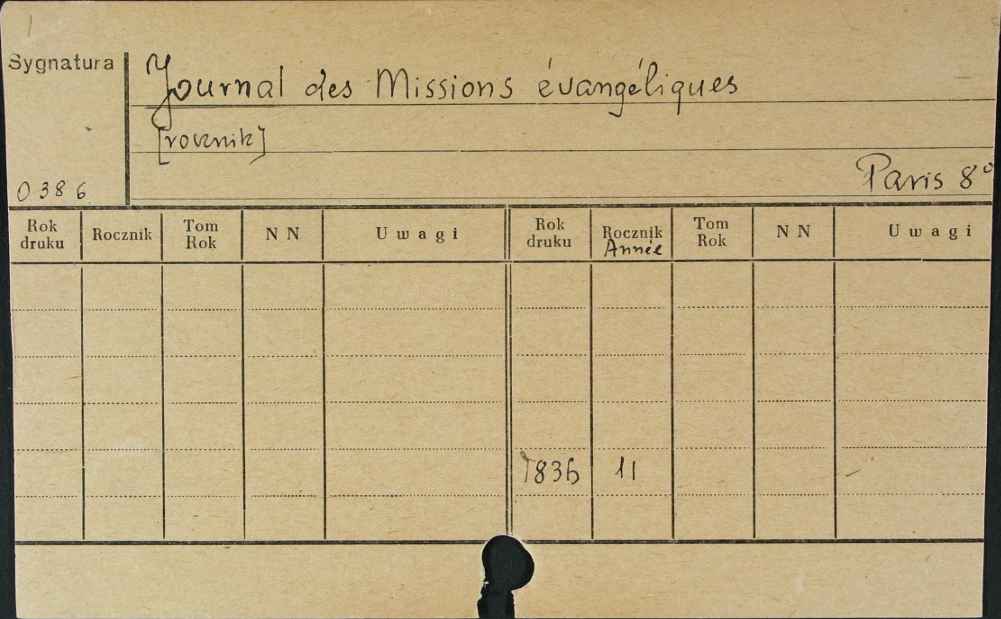 Sygnatura
Journal des Missions évangéliques
[rocznik]
Paris 8°
0386
Rok druku Rocznik Tom Rok N N Uwagi Rok druku Rocznik Année Tom Rok N N Uwagi
1836 11